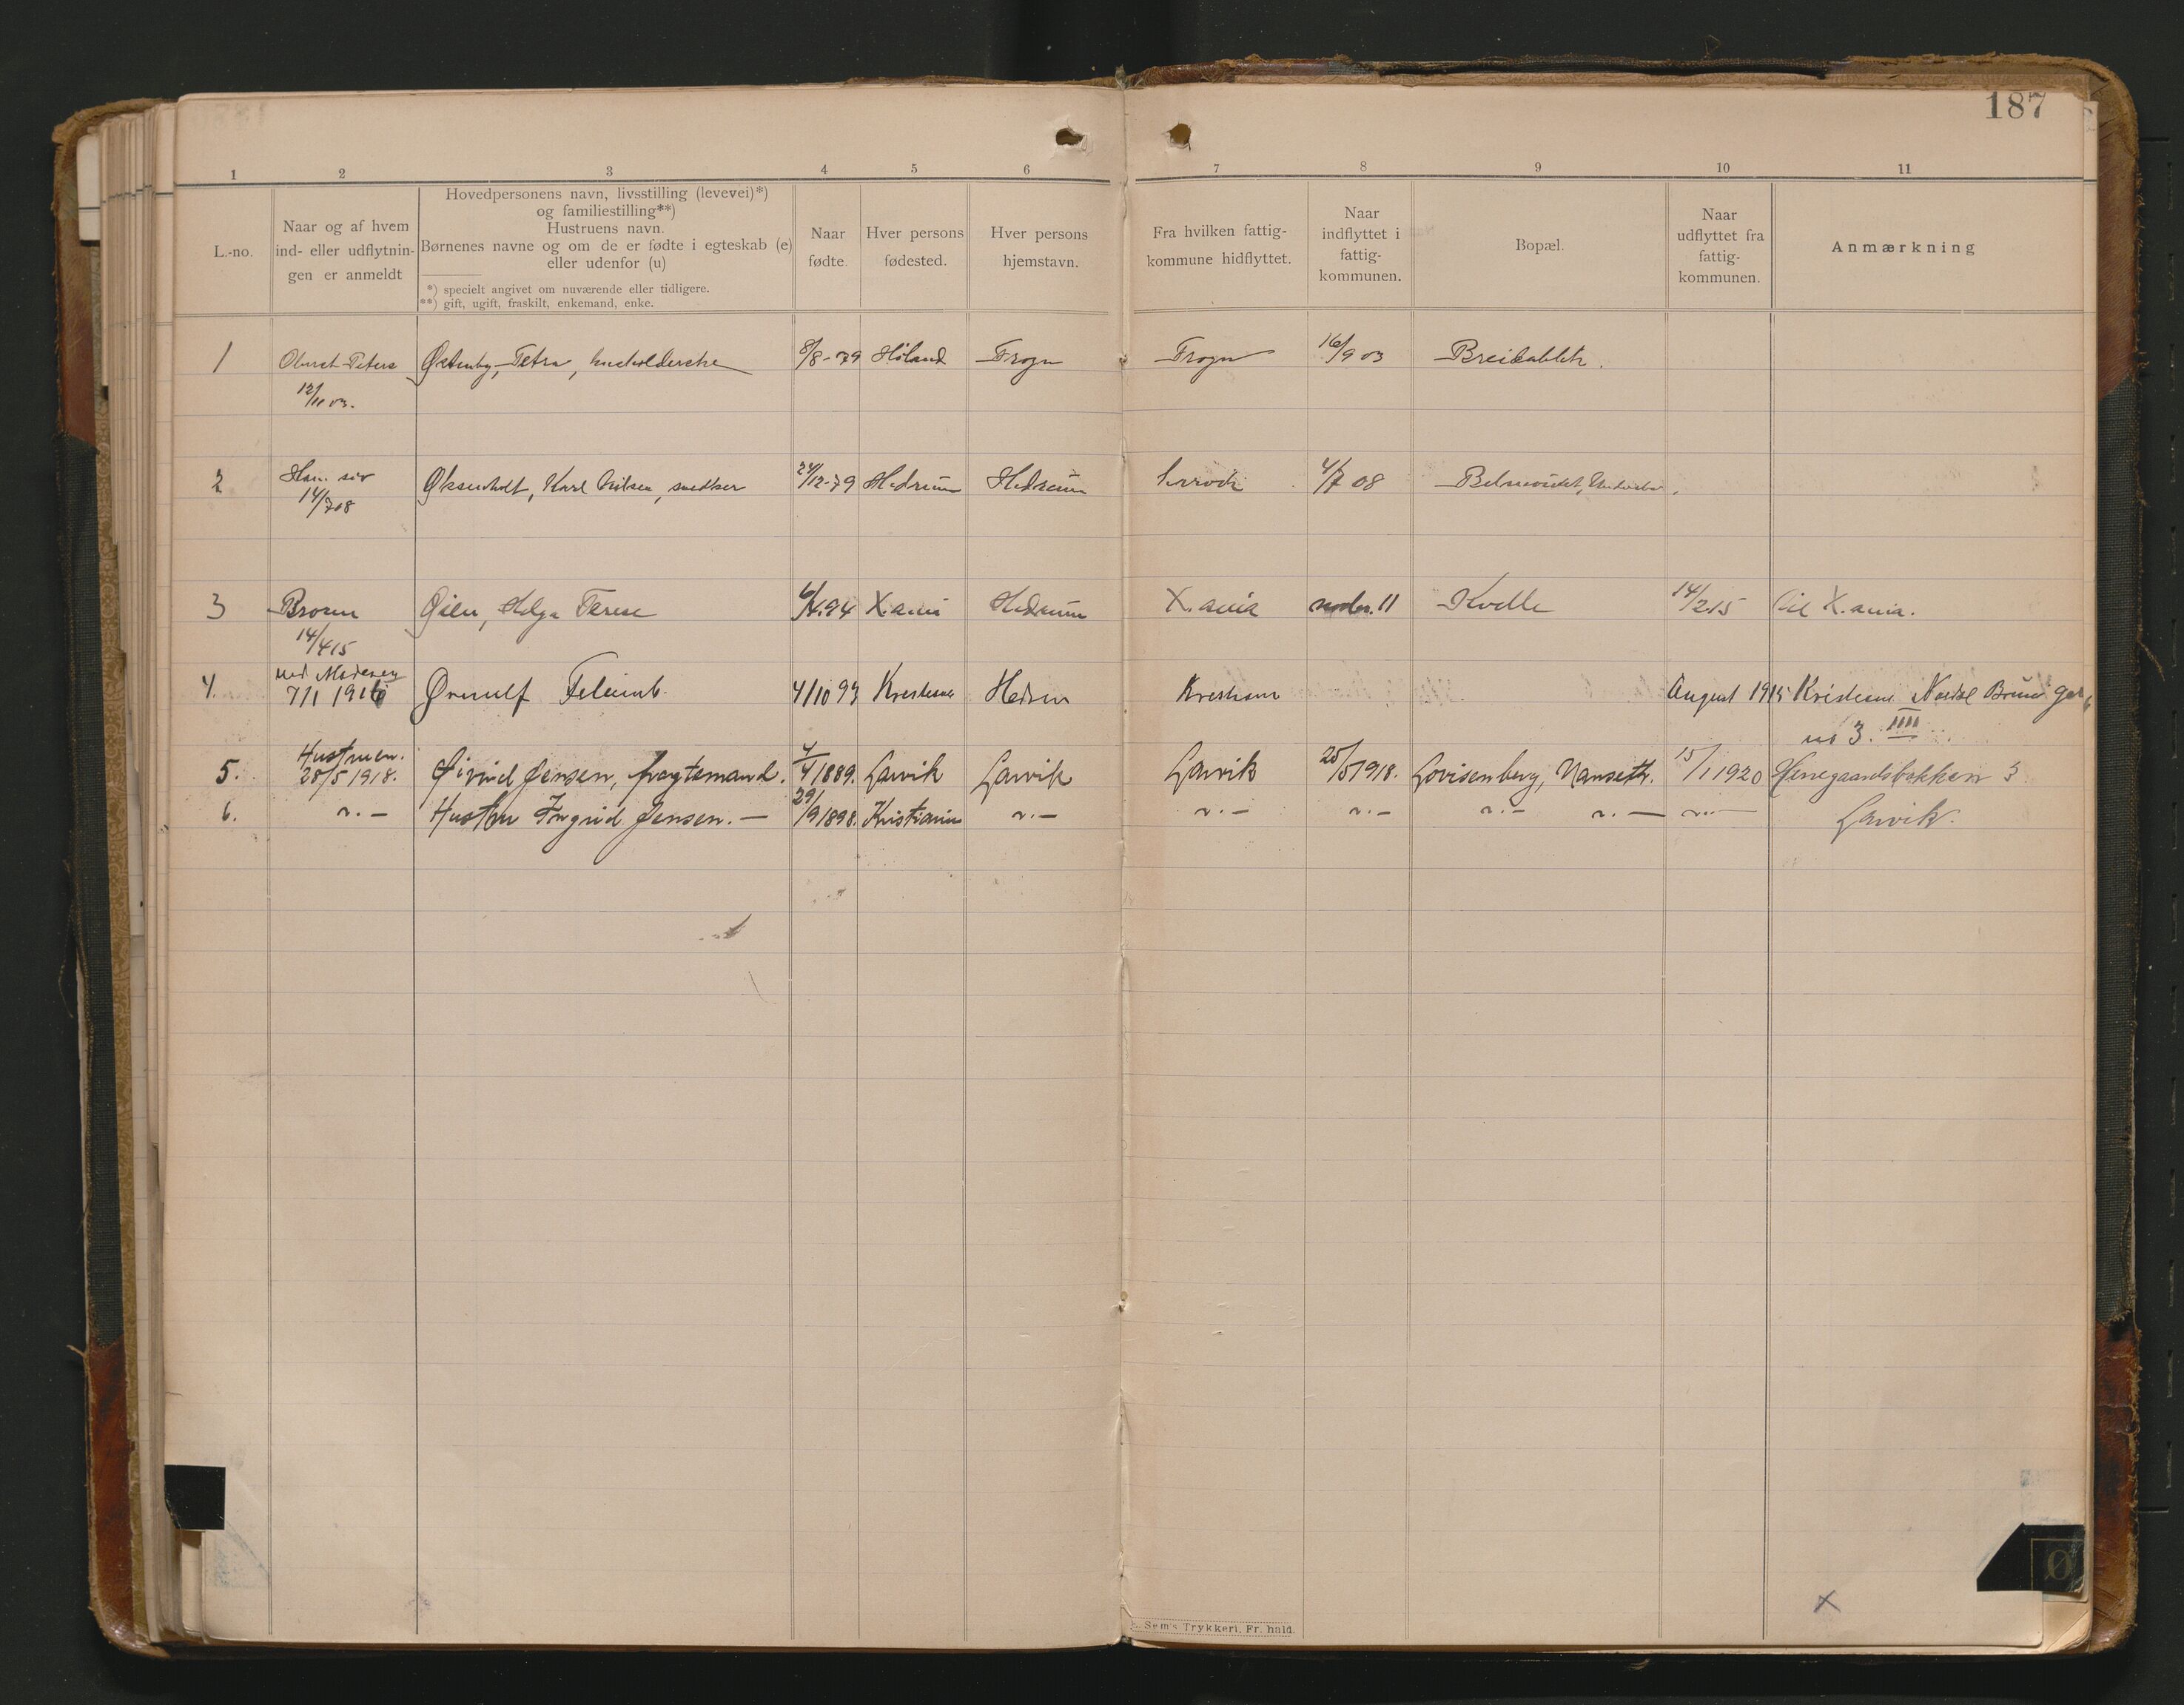 187
1 2 3 4 5 6 7 8 9 10 11
L.-no.
Naar og af hvem
ind- eller udflytnin-
gen er anmeldt
Hovedpersonens navn, livsstilling (levevei)*)
og familiestilling**)
Hustruens navn.
Børnenes navne og om de er fødte i egteskab (e)
eller udenfor (u)
*) specielt angivet om nuværende eller tidligere.
**) gift, ugift, fraskilt, enkemand, enke.
Naar
fødte.
Hver persons
fødested.
Hver persons
hjemstavn.
Fra hvilken fattig-
kommune hidflyttet.
Naar
indflyttet i
fattig-
kommunen.
Bopæl.
Naar
udflyttet fra
fattig-
kommunen.
Anmærkning
1 Oberst Peters Østenby, Petra, husholderske 8/8-79 Höland Frogn Frogn 16/9 03 Breidablik.
12/11 03.
2 Øksenholt, Karl Nilsen, snedker 24/12-79 Hedrum Hedrum 4/7 08
14/7 08
3 Broren Øien, Helga Terese X.ania Hedrum X.ania 11 Kvelle 14/2 15 til X.ania.
14/4 15
4. 7/1 1916 Ørnulf 4/10 93 August 1915
no 3. IIII
5. Hustruen. 28/5 1918. Øivind Jensen, fragtemand. 4/4 1889. Larvik Larvik Larvik 25/5 1918. Lovisenberg, Nanseth. 15/1 1920 3
6. " - Hustru Ingrid Jensen. - 29/9 1898. Kristiania " - " - " - " - " - " - Larvik.
E. Sem's Trykkeri, Fr. hald.
Ø
X